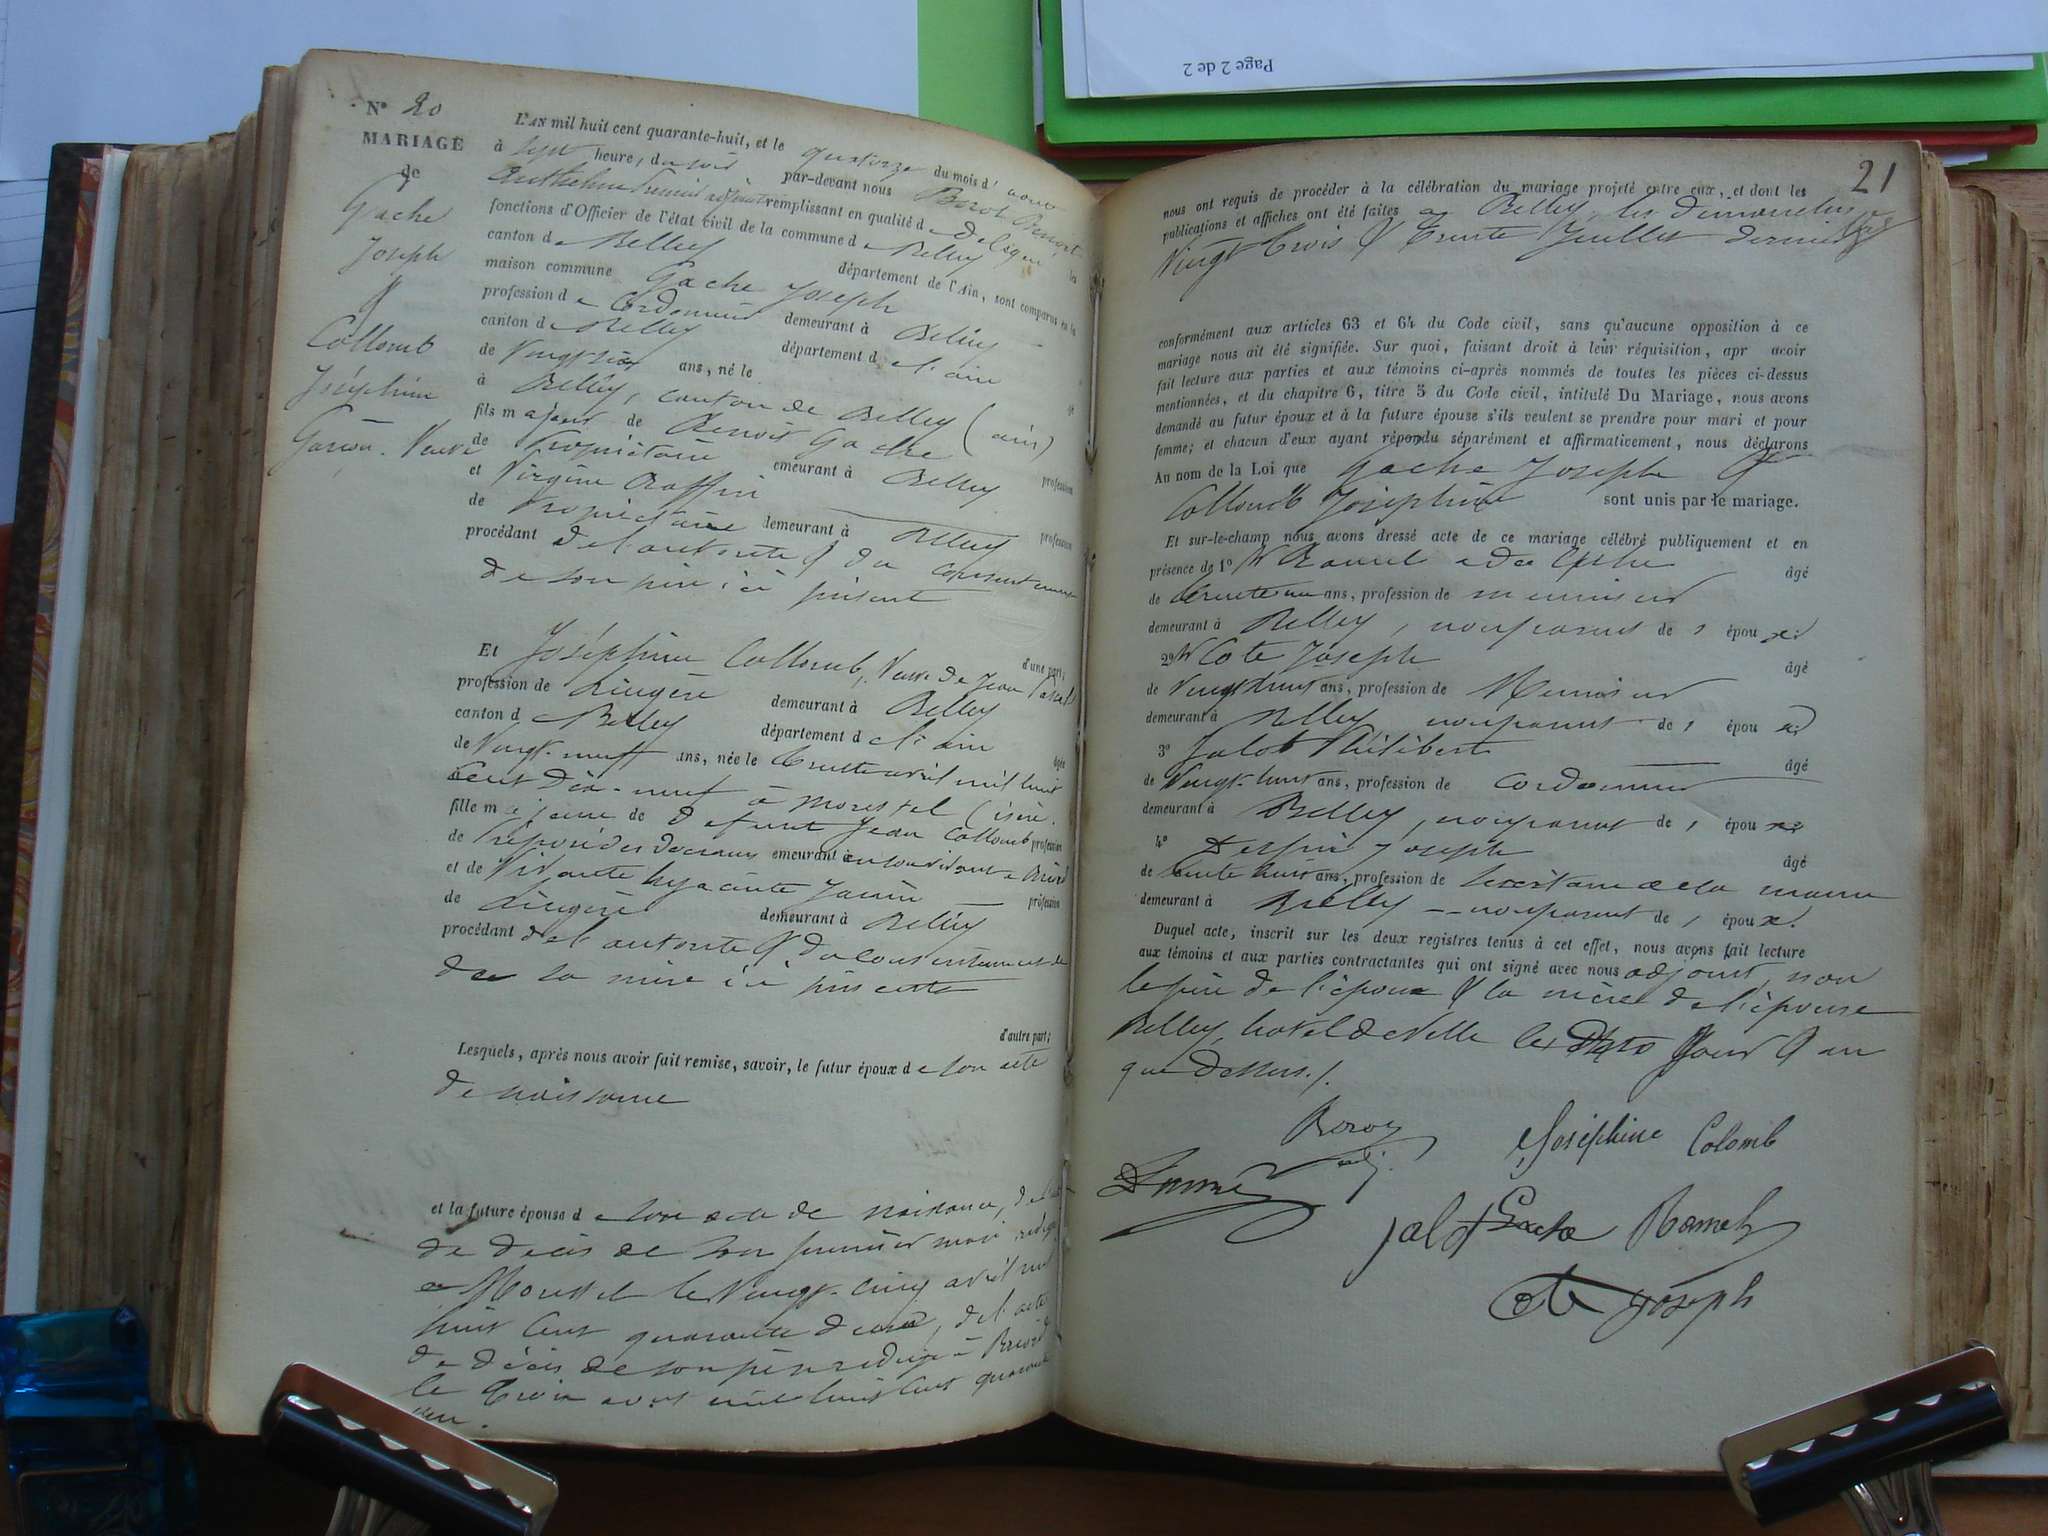 Page 2 de 2
N° 20
MARIAGE
de
Gache
Joseph
&
Collomb
Joséphine
Garçon. Veuve
L'AN mil huit cent quarante-huit, et le quatorze du mois d'aout
à sept heure, du soir par-devant nous Benoit
Anthelme premier adjoint remplissant en qualité de délégué les
fonctions d'Officier de l'état civil de la commune de Belley
canton de Belley département de l'Ain, sont comparus en la
maison commune Gache Joseph
profession de Cordonnier demeurant à Belley
canton de Belley département de l'ain âgé
de Vingt six ans, né le
à Belley, canton de Belley (ain)
fils majeur de Benoit Gache profession
de Propriétaire demeurant à Belley
et Virginie profession
de Propriétaire demeurant à Belley
procédant de l'autorité & du consentement
de son père ici présent
d'une part;
Et Joséphine Collomb, Veuve de Jean
profession de Lingère demeurant à Belley
canton de Belley département de l'ain âgée
de Vingt-neuf ans, née le trente avril mil huit
cent dix-neuf à Morestel (isère.
fille majeure de défunt Jean Collomb profession
de Préposé des douanes demeurant en son vivant à
et de Vivante hyacinte profession
de Lingère demeurant à Belley
procédant de l'autorité & du consentement de
de sa mère ici présente
d'autre part;
Lesquels, après nous avoir fait remise, savoir, le futur époux de son acte
de naissance
et la future épouse de son acte de naissance, de
de décès de son premier mari rédigé
a le Vingt-cinq avril mil
huit cent quarante deux, de l'acte
de décès de son père rédigé à
le trois aout mil huit cent quarante
un.
21
nous ont requis de procéder à la célébration du mariage projeté entre eux, et dont les
publications et affiches ont été faites a Belley, les dimanches
Vingt trois & trente Juillet dernier
conformément aux articles 63 et 64 du Code civil, sans qu'aucune opposition à ce
mariage nous ait été signifiée. Sur quoi, faisant droit à leur réquisition, apr avoir
fait lecture aux parties et aux témoins ci-après nommés de toutes les pièces ci-dessus
mentionnées, et du chapitre 6, titre 5 du Code civil, intitulé Du Mariage, nous avons
demandé au futur époux et à la future épouse s'ils veulent se prendre pour mari et pour
femme; et chacun d'eux ayant répondu séparément et affirmativement, nous déclarons
Au nom de la Loi que Gache Joseph &
Collomb Joséphine sont unis par le mariage.
Et sur-le-champ nous avons dressé acte de ce mariage célébré publiquement et en
présence de 1° âgé
de trente un ans, profession de menuisier
demeurant à Belley, non parent de s époux
2° Cote Joseph âgé
de Vingt huit ans, profession de Menuisier
demeurant à Belley non parent de s époux
3° Jalot Philibert âgé
de Vingt-huit ans, profession de cordonnier
demeurant à Belley, non parent de s époux
4° Joseph âgé
de trente huit ans, profession de Secrétaire de la mairie
demeurant à Belley -- non parent de s époux.
Duquel acte, inscrit sur les deux registres tenus à cet effet, nous avons fait lecture
aux témoins et aux parties contractantes qui ont signé avec nous adjoint, non
le père de l'époux & la mère de l'épouse
Belley, hotel de Ville les jour & an
que dessus./.
Joséphine Colomb
jalot Gache Ramel
Cote joseph